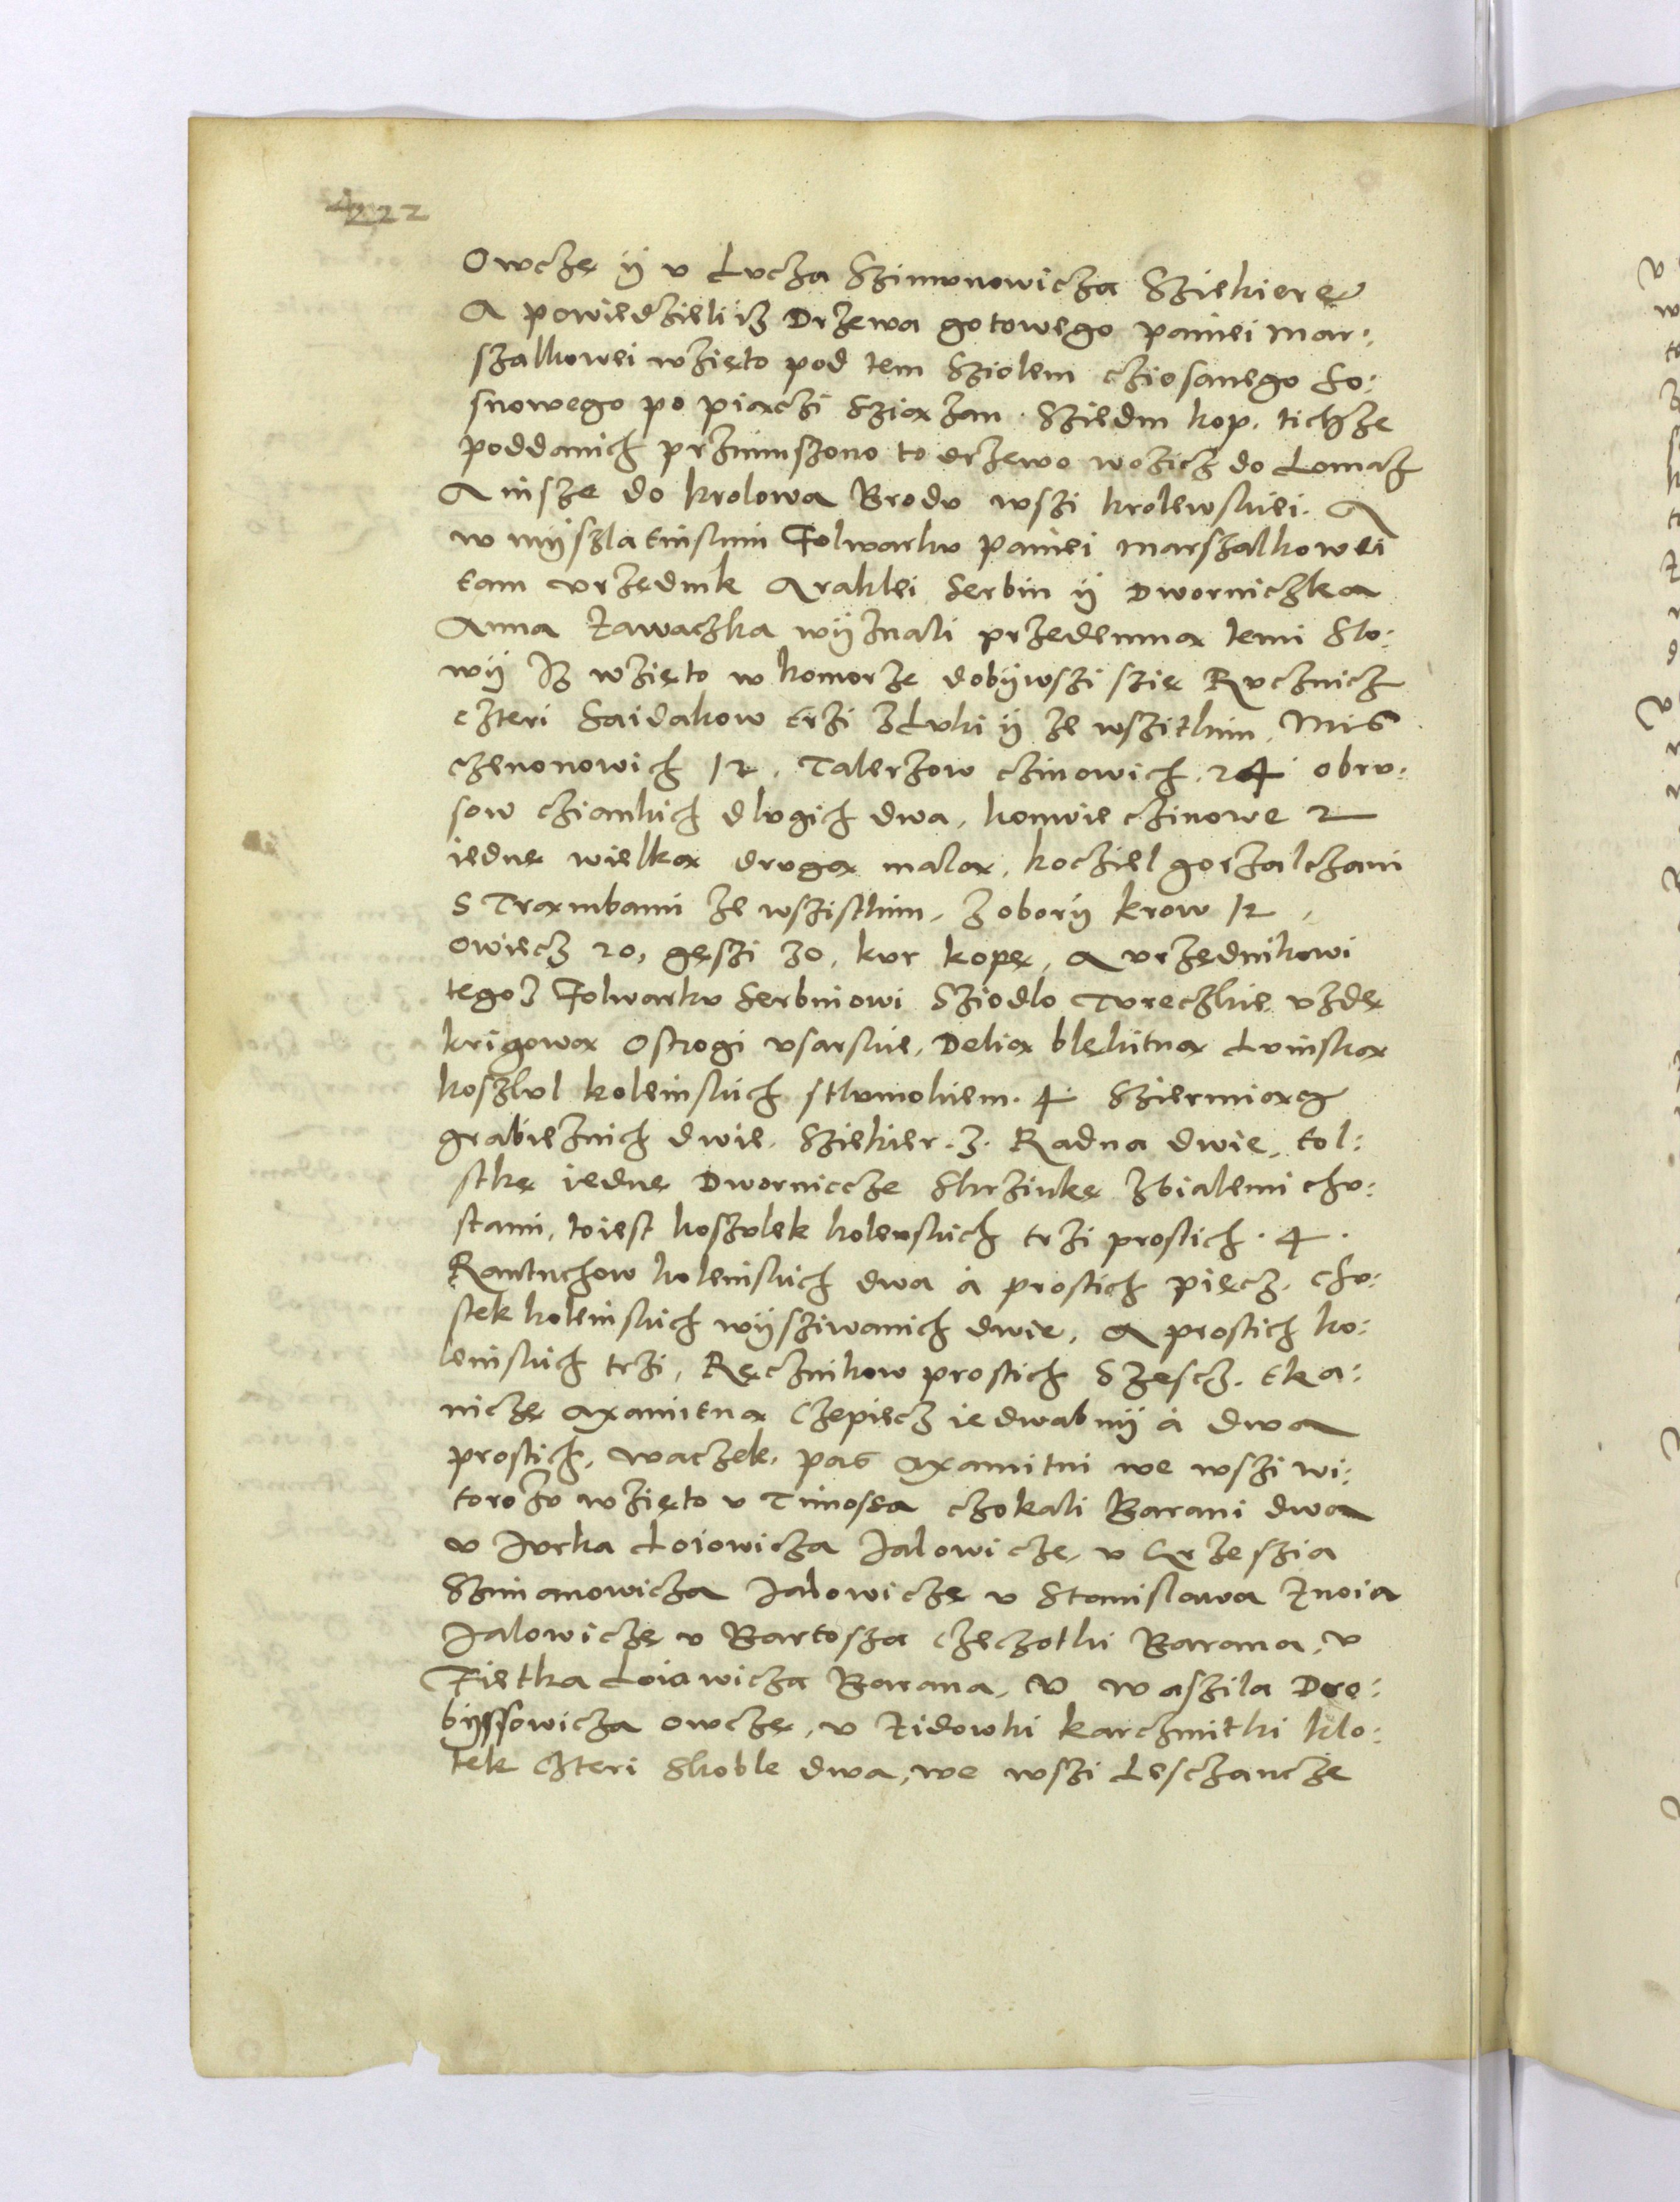 222
Owczę ÿ v Lucza Szimonowicza Sziekierę
A powiedzieli iz Drzewa gotowego paniei mar:
szalkowei wzięto pod tem Sziolem cziosanego So:
snowego po piaczi Sziaxzan. Sziedm kop. tichze
poddanich prziniuszono to drzewo wozicz do Lomaz
A insze do krolowa Brodu wszi krolewskiei. A
w mÿszlatinskim Folwarku paniei marszalkowei
tam vrzędnik Araklei Serbin ÿ Dworniczka
Anna Zawaczka wÿznali przedemna temi Slo:
wÿ Iz wzięto w komorze dobÿwszi szię Rucznicz
czteri Saidakow trzi z Luki ÿ ze wszitkim, Mis
czenonowich 12, Talerzow czinowich 24 obru:
sow cziankich dlugich dwa, konwie czinowe 2
iednę wielka druga mala, kocziel gorzalczani
S Trambami ze wszistkim, z oborÿ krow 12,
owiecz 20, gęszi 30, kur kopę, A vrzędnikowi
tegoz Folwarku Serbinowi Sziodlo Tureczkie vzdę
krigowa Ostrogi vsarskie, Delia blękitna Lunska
koszlul kolenskich stlumokiem. 4 Sziermiaxg
grabieznich dwie. Sziekier .3. Radna dwie, tol:
stkę iednę Dwornicze Skrzinkę zbialemi chu:
stami, toiest koszulek kolenskich trzi prostich .4.
Rantuchow kolenskich dwa á prostich pięcz. chu:
stek kolenskich wÿsziwanich dwie, A prostich ko:
lenskich trzi, Ręcznikow prostich Szescz. tka:
niczę axamitna Czepiecz iedwabnÿ á dwa
prostich, waczek, pas axamitni we wszi wi:
torozu wzięto v Timosza czokali Barani dwa
v Jurka Loiowicza Jalowiczę, v Grzeszia
Szimanowicza Jalowiczę v Stanislawa Znoia
Jalowiczę v Bartosza Czeczotki Barana, v
Fietka Loiowicza Barana, V Waszila Dro:
bÿssowicza owczę, v Zidowki karczmitki klo:
tek Czteri Skoble dwa, we wszi Lesczancze